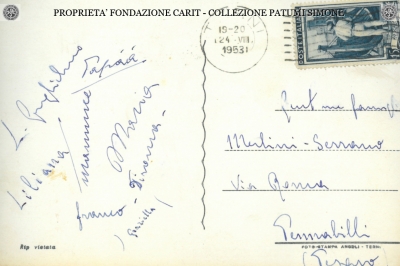 PROPRIETA' FONDAZIONE CARIT - COLLEZIONE PATUMI SIMONE
TERNI
19-20
24 - VIII
1953
POSTE ITALIANE
L. Guglielmo
Liliana
mamma e Papàà
Maria
Franco - Tirania -
Gent.ma famiglia
Merlini - Serrano
Via Roma
Pennabilli
(Pesaro)
Rip vietata
FOTO-STAMPA ANGELI - TERNI